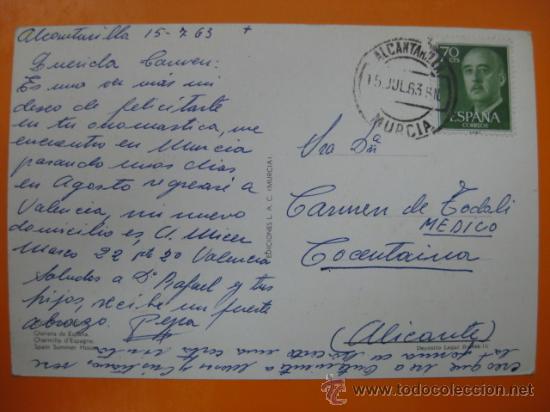 Alcantarilla 15-7-63 +
Querida Carmen:
Es una vez más mi
deseo de felicitarte
en tu onomastica, me
encuentro en Murcia
pasando unos dias
en Agosto regresaré a
Valencia, mi nuevo
domicilio es C/. Micer
Masco 22 pta 20 Valencia
Saludos a Dn Rafael y tus
hijos, recibe un fuerte
abrazo. Pepa
Glorieta de España.
Charmille d'Espagne.
Spain Summer House.
EDICIONES L. A. C. (MURCIA)
ALCANTARILLA
15 JUL 63
MURCIA
70 CTS
ESPAÑA
CORREOS
Sra Dña
Carmen de Todoli
MEDICO
Cocentaina
(Alicante)
Depósito Legal
todocoleccion